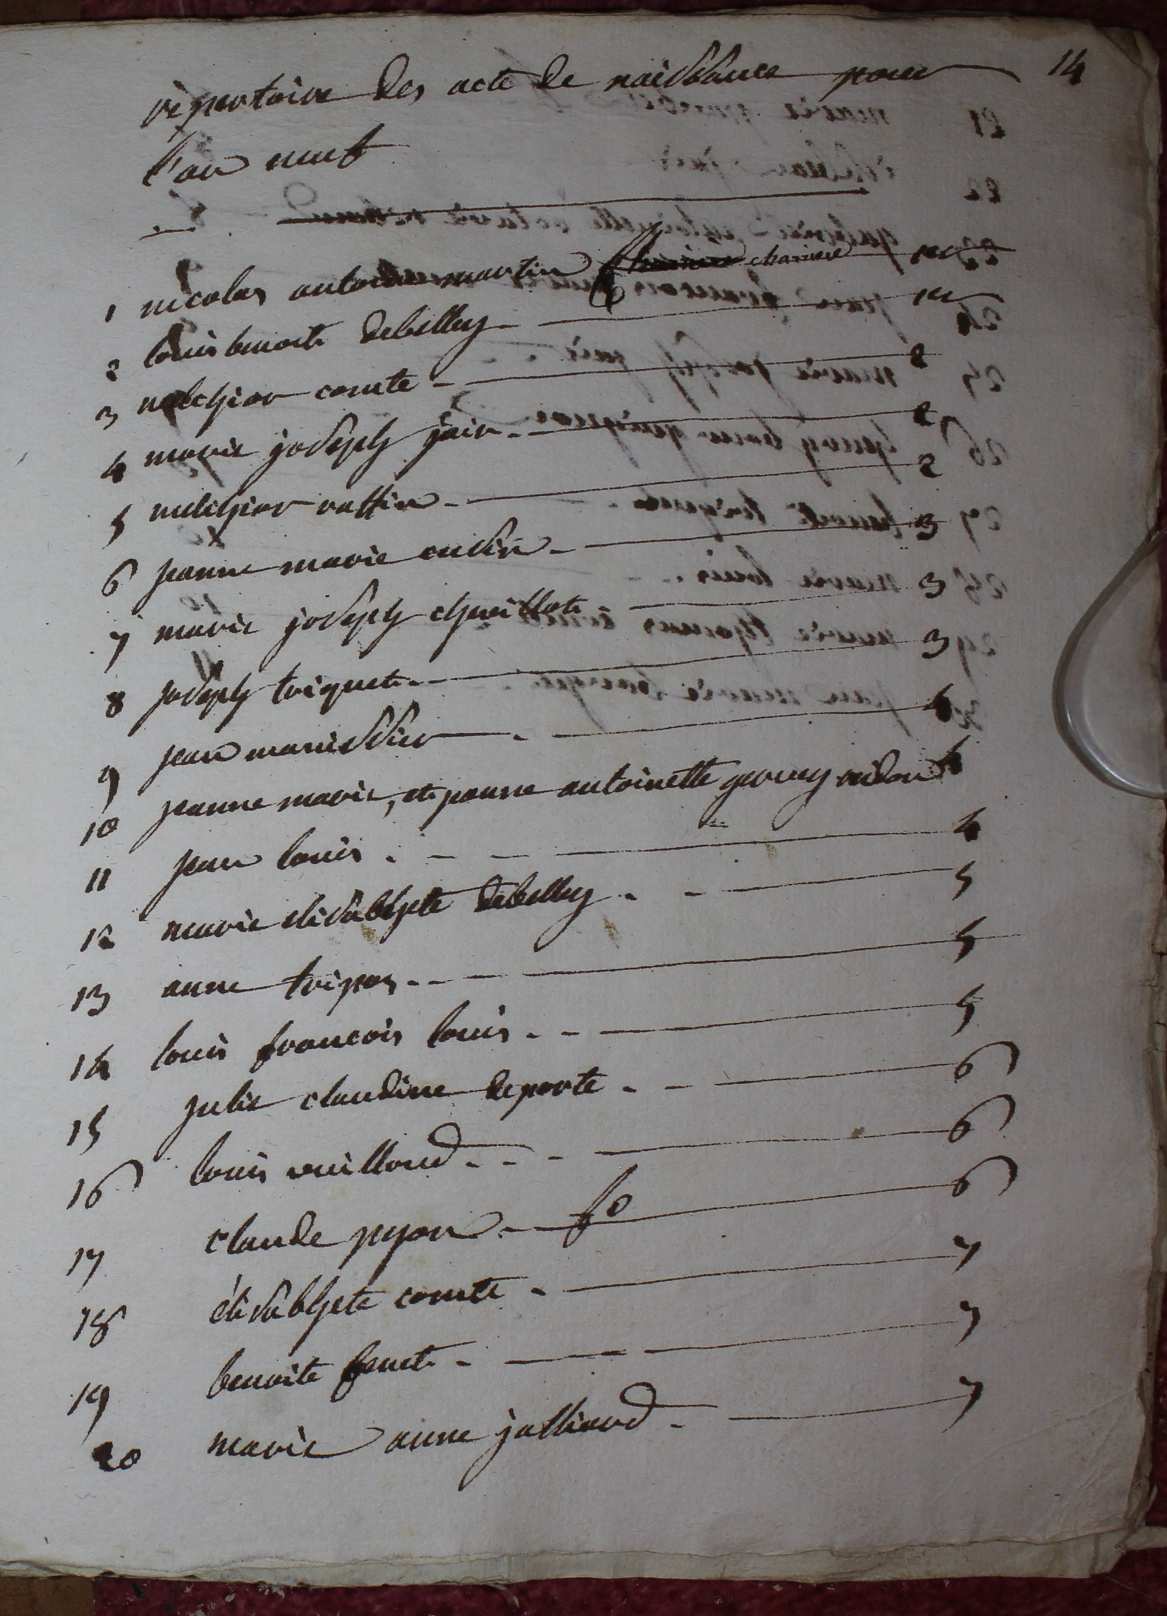 14
répertoire des acte de naissance pour
l'an neuf
1 nicolas antoine martin chariere 1er
2 louis benoite debelley 1er
3 melchior comte 2
4 marie joseph jain 2
5 melchior rattin 2
6 jeanne marie cudin 3
7 marie joseph chaillote 3
8 joseph triquet 3
9 jean marie didier 4
10 jeanne marie, et jeanne antoinette gerrey 4
11 jean louis 4
12 marie elisabhete debelley 5
13 anne tripoz 5
14 louis francois louis 5
15 julie claudine deporte 6
16 louis vuilloud 6
17 claude pyon fo 6
18 élisabhete comte 7
19 benoite 7
20 marie anne jalliard 7